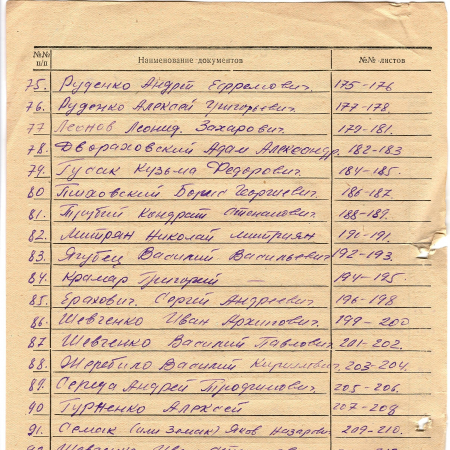 №№ п/п Наименование документов №№ листов
75. Руденко Андрей Ефремович. 175-176
76. Руденко Алексей Григорьевич. 177-178.
77 Леонов Леонид Захарович. 179-181.
78. Двораховский Адам Александр. 182-183
79. Гусак Кузьма Федорович. 184-185.
80 Пиховский Борис Георгиевич. 186-187.
81. Трубий Кондрат Степанович. 188-189.
82. Митрян Николай Митриян 190-191.
83. Ягубец Василий Васильевич 192-193.
84. Крамар Григорий — 194-195.
85. Брахович. Сергей Андреевич 196-198
86. Шевченко Иван Архипович. 199-200
87 Шевченко Василий Павлович 201-202.
88. Жеребило Василий Кириллович 203-204.
89. Середа Андрей Трофимович. 205-206.
90 Гурженко Алексей 207-208
91. Семак (или Замак) Яков Назарович 209-210.